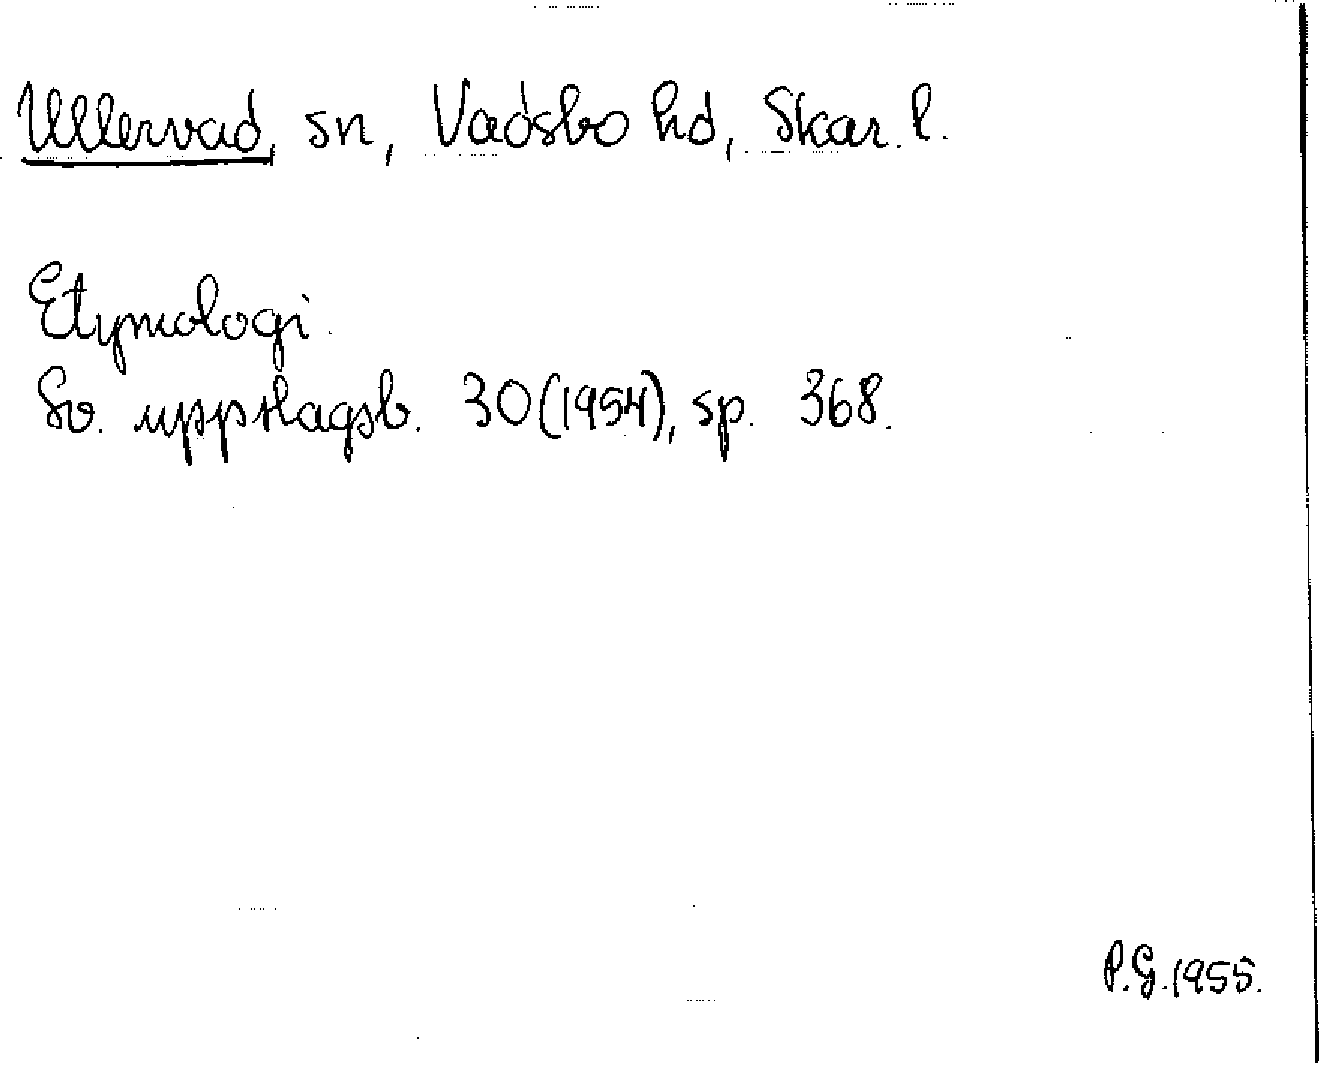 Ullervad, sn, Vadsbo hd, Skar. l.
Etymologi.
Sv. uppslagsb. 30(1954), sp. 368.
P.G. 1955.